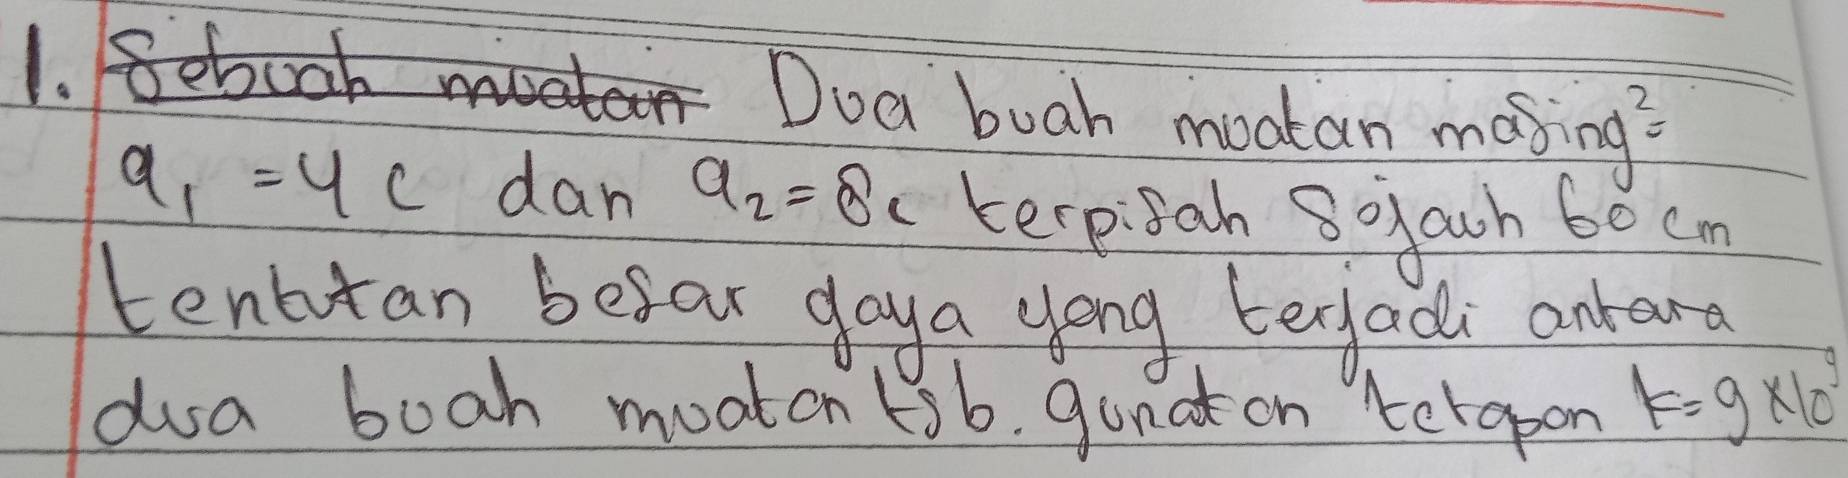 1. Sebuah muatan Dua buah muatan masing²
q₁ = 4 C dan q₂ = 8 C terpisah sejauh 60 cm
tentukan besar gaya yang terjadi antara
dua buah muatan tsb. gunakan tetapan k = 9 x 10⁹